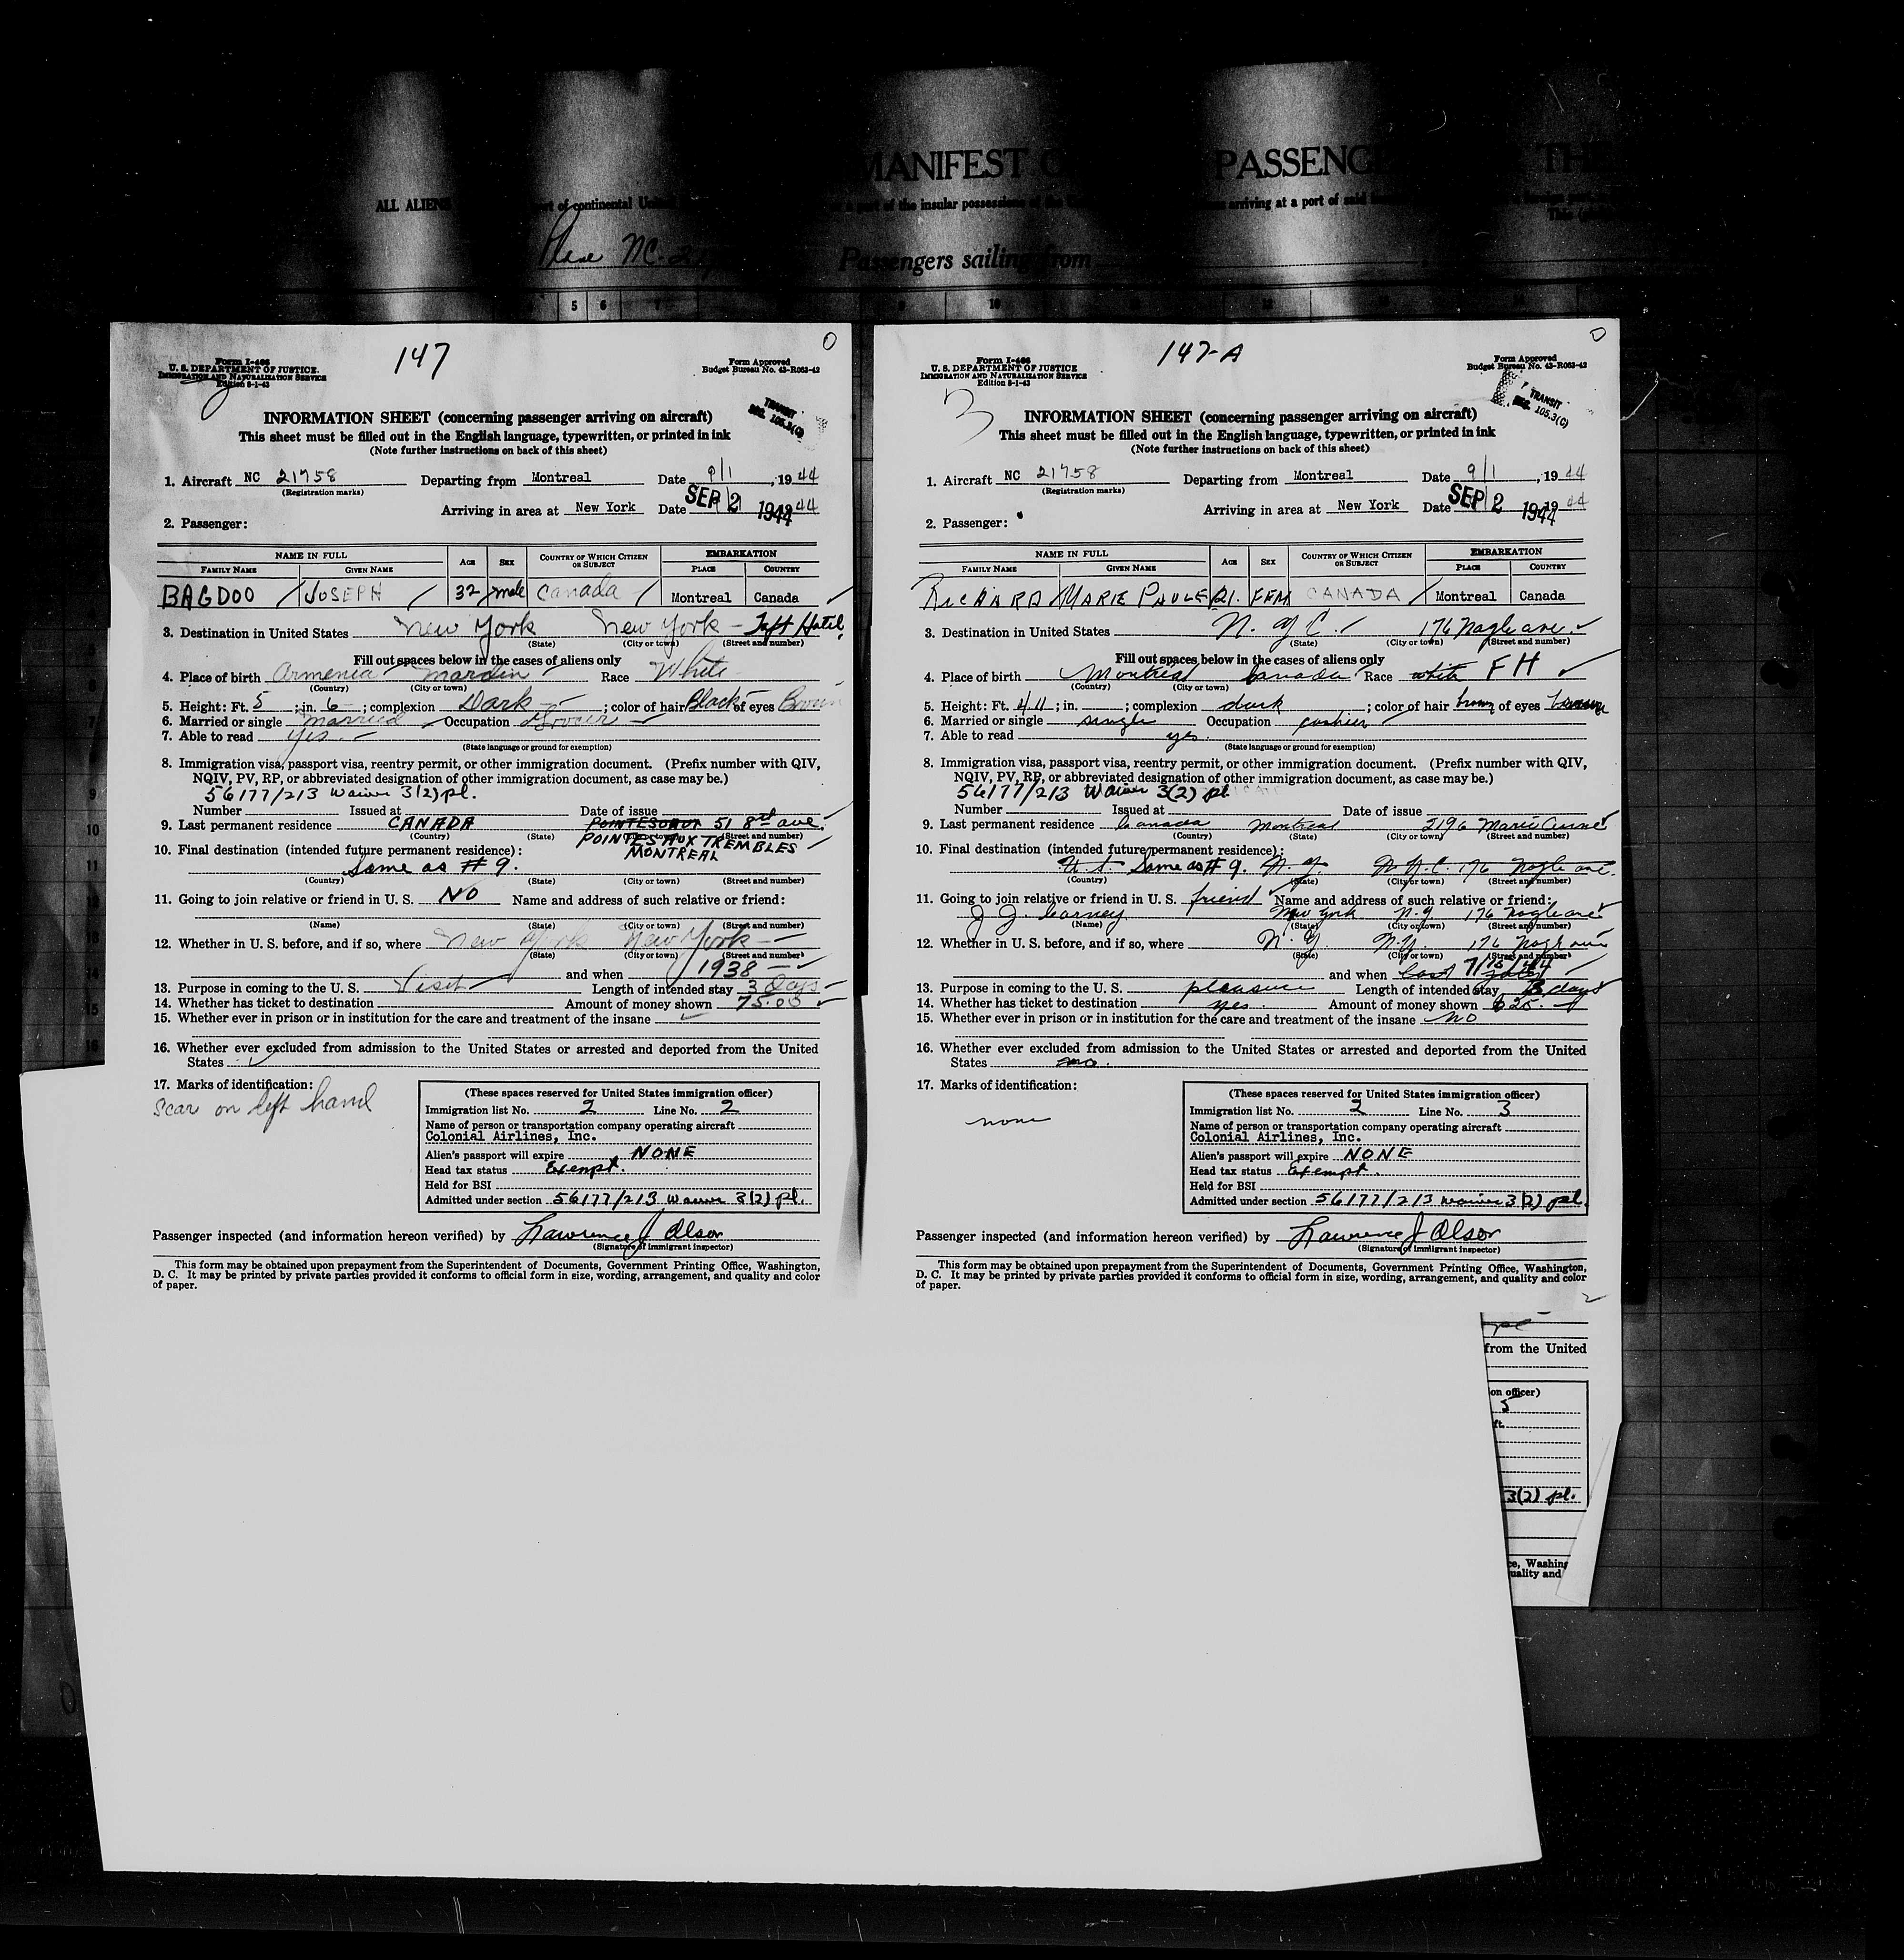 MANIFEST O PASSENG THE
ALL ALIENS rt of continental Unit a part of the insular possessions of the arriving at a port of said
Passengers sailing from
5 6 7 9 10 11 12 13 14
147
Form I-466
U. S. DEPARTMENT OF JUSTICE.
IMMIGRATION AND NATURALIZATION SERVICE
Edition 8-1-43
Form Approved
Budget Bureau No. 43-R063-42
TRANSIT
SEC. 105.3(C)
INFORMATION SHEET (concerning passenger arriving on aircraft)
This sheet must be filled out in the English language, typewritten, or printed in ink
(Note further instructions on back of this sheet)
1. Aircraft NC 21758 Departing from Montreal Date 9/1, 1944
(Registration marks)
Arriving in area at New York Date SEP 2 1944 1944
2. Passenger:
NAME IN FULL AGE SEX COUNTRY OF WHICH CITIZEN OR SUBJECT EMBARKATION
FAMILY NAME GIVEN NAME PLACE COUNTRY
BAGDOO JOSEPH 32 male Canada Montreal Canada
3. Destination in United States New York New York - Taft Hotel
(State) (City or town) (Street and number)
Fill out spaces below in the cases of aliens only
4. Place of birth Armenia mardin Race White
(Country) (City or town)
5. Height: Ft. 5; in. 6; complexion Dark; color of hair Black of eyes Brown
6. Married or single Married Occupation Grocer
7. Able to read yes
(State language or ground for exemption)
8. Immigration visa, passport visa, reentry permit, or other immigration document. (Prefix number with QIV,
NQIV, PV, RP, or abbreviated designation of other immigration document, as case may be.)
56177/213 waiver 3(2) pl.
Number Issued at Date of issue
9. Last permanent residence CANADA 51 8rd ave.
(Country) (State) (City or town) (Street and number)
POINTES AUX TREMBLES
10. Final destination (intended future permanent residence): MONTREAL
Same as # 9.
(Country) (State) (City or town) (Street and number)
11. Going to join relative or friend in U. S. NO Name and address of such relative or friend:
(Name) (State) (City or town) (Street and number)
12. Whether in U. S. before, and if so, where New York New York
(State) (City or town) (Street and number)
and when 1938
13. Purpose in coming to the U. S. Visit Length of intended stay 3 days
14. Whether has ticket to destination Amount of money shown 75.00
15. Whether ever in prison or in institution for the care and treatment of the insane
16. Whether ever excluded from admission to the United States or arrested and deported from the United
States
17. Marks of identification:
Scar on left hand
(These spaces reserved for United States immigration officer)
Immigration list No. 2 Line No. 2
Name of person or transportation company operating aircraft
Colonial Airlines, Inc.
Alien's passport will expire NONE
Head tax status Exempt.
Held for BSI
Admitted under section 56177/213 waiver 3(2) pl.
Passenger inspected (and information hereon verified) by Lawrence J Olson
(Signature of immigrant inspector)
This form may be obtained upon prepayment from the Superintendent of Documents, Government Printing Office, Washington,
D. C. It may be printed by private parties provided it conforms to official form in size, wording, arrangement, and quality and color
of paper.
147-A
Form I-466
U. S. DEPARTMENT OF JUSTICE
IMMIGRATION AND NATURALIZATION SERVICE
Edition 8-1-43
Form Approved
Budget Bureau No. 43-R063-42
3
TRANSIT
SEC. 105.3(C)
INFORMATION SHEET (concerning passenger arriving on aircraft)
This sheet must be filled out in the English language, typewritten, or printed in ink
(Note further instructions on back of this sheet)
1. Aircraft NC 21758 Departing from Montreal Date 9/1, 1944
(Registration marks)
Arriving in area at New York Date SEP 2 1944 1944
2. Passenger:
NAME IN FULL AGE SEX COUNTRY OF WHICH CITIZEN OR SUBJECT EMBARKATION
FAMILY NAME GIVEN NAME PLACE COUNTRY
RICHARD MARIE PAULE 21. FEM CANADA Montreal Canada
3. Destination in United States N. Y C. 176 Nagle ave.
(State) (City or town) (Street and number)
Fill out spaces below in the cases of aliens only
4. Place of birth Montreal Canada Race white FH
(Country) (City or town)
5. Height: Ft. 4 11; in.; complexion dark; color of hair brown of eyes brown
6. Married or single single Occupation cashier
7. Able to read yes.
(State language or ground for exemption)
8. Immigration visa, passport visa, reentry permit, or other immigration document. (Prefix number with QIV,
NQIV, PV, RP, or abbreviated designation of other immigration document, as case may be.)
56177/213 Waiver 3(2) pl.
Number Issued at Date of issue
9. Last permanent residence Canada Montreal 2196 Marie Anne
(Country) (State) (City or town) (Street and number)
10. Final destination (intended future permanent residence):
U. S. Same as # 9. N. Y. N. Y. C. 176 Nagle ave.
(Country) (State) (City or town) (Street and number)
11. Going to join relative or friend in U. S. friend Name and address of such relative or friend:
J J. Carney New York N.Y 176 Nagle ave
(Name) (State) (City or town) (Street and number)
12. Whether in U. S. before, and if so, where N. Y N.Y. 176 Nagle ave
(State) (City or town) (Street and number)
and when last 7/15/44
13. Purpose in coming to the U. S. pleasure Length of intended stay 3 days
14. Whether has ticket to destination yes Amount of money shown $25.
15. Whether ever in prison or in institution for the care and treatment of the insane no
16. Whether ever excluded from admission to the United States or arrested and deported from the United
States no.
17. Marks of identification:
none
(These spaces reserved for United States immigration officer)
Immigration list No. 2 Line No. 3
Name of person or transportation company operating aircraft
Colonial Airlines, Inc.
Alien's passport will expire NONE
Head tax status Exempt.
Held for BSI
Admitted under section 56177/213 waiver 3(2) pl.
Passenger inspected (and information hereon verified) by Lawrence J Olson
(Signature of immigrant inspector)
This form may be obtained upon prepayment from the Superintendent of Documents, Government Printing Office, Washington,
D. C. It may be printed by private parties provided it conforms to official form in size, wording, arrangement, and quality and color
of paper.
pl
from the United
on officer)
5
ft.
3(2) pl.
ce, Washing
uality and